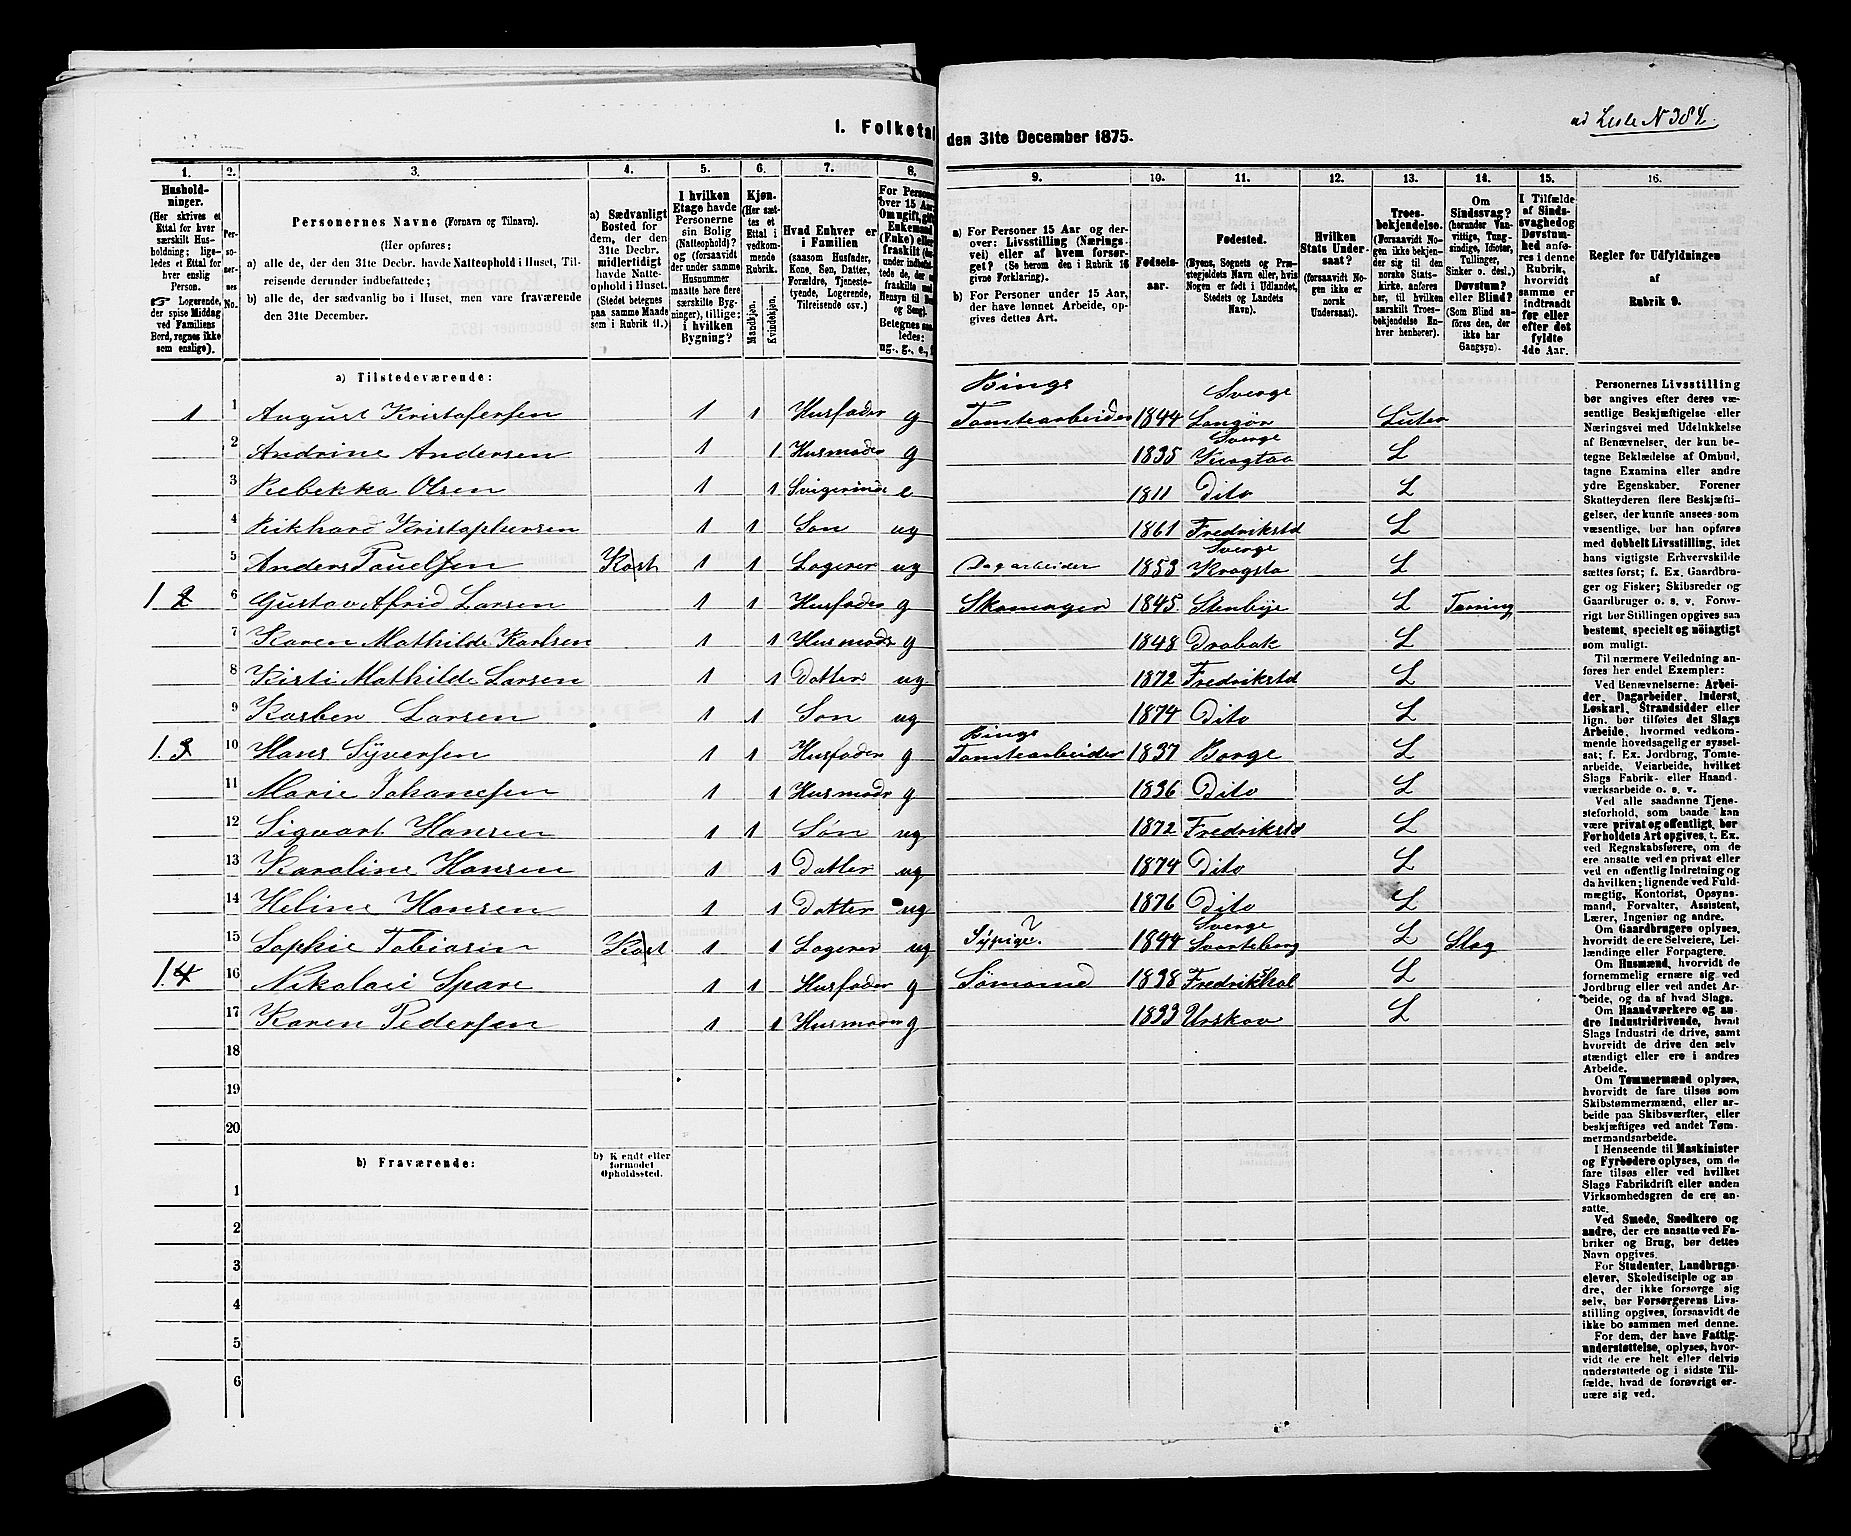 ad Liste N 384.
I. Folketal
den 31te December 1875.
1. 2. 3. 4. 5. 6. 7. 8. 9. 10. 11. 12. 13. 14. 15. 16.
Husholdninger. (Her skrives et Ettal for hver særskilt Husholdning; ligeledes et Ettal for hver enslig Person. ☞ Logerende, der spise Middag ved Familiens Bord, regnes ikke som enslige).
Personernes No.
Personernes Navne (Fornavn og Tilnavn).
(Her opføres:
a) alle de, der den 31te Decbr. havde Natteophold i Huset, Tilreisende derunder indbefattede;
b) alle de, der sædvanlig bo i Huset, men vare fraværende den 31te December.
a) Sædvanligt Bosted for dem, der den 31te Decbr. midlertidigt havde Natteophold i Huset. (Stedet betegnes paa samme Maade som i Rubrik 11.)
I hvilken Etage havde Personerne sin Bolig (Natteophold)? og (forsaavidt der under samme Husnummer maatte høre flere særskilte Bygninger), tillige: i hvilken Bygning?
Kjøn. (Her sættes et Ettal i vedkommende Rubrik. Mandkjøn. Kvindekjøn.
Hvad Enhver er i Familien (saasom Husfader, Kone, Søn, Datter, Forældre, Tjenestetyende, Logerende, Tilreisende osv.)
a) For Personer 15 Aar og derover: Livsstilling (Næringsvei) eller af hvem forsørget? (Se herom den i Rubrik 16 givne Forklaring).
b) For Personer under 15 Aar, der have lønnet Arbeide, opgives dettes Art.
Fødselsaar.
Fødested. (Byens, Sognets og Præstegjeldets Navn eller, hvis Nogen er født i Udlandet, Stedets og Landets Navn).
Hvilken Stats Undersaat? (forsaavidt Nogen ikke er norsk Undersaat).
Troesbekjendelse. (Forsaavidt Nogen ikke bekjender sig til den norske Statskirke, anføres her, til hvilken særskilt Troesbekjendelse Enhver henhører).
Om Sindssvag? (herunder Vanvittige, Tungsindige, Idioter, Tullinger, Sinker o. desl.) Døvstum? eller Blind? (Som Blind anføres den, der ikke har Gangsyn).
I Tilfælde af Sindssvaghed og Døvstumhed anføres i denne Rubrik, hvorvidt samme er indtraadt før eller efter det fyldte 4de Aar.
Regler for Udfyldningen af Rubrik 9.
a) Tilstedeværende:
1 1 August Kristofersen 1 1 Husfader g Bings Tomtearbeider 1844 Sverge Langør Luter
2 Andrine Andersen 1 1 Husmoder g 1835 Sverge Krogtaa L
3 Rebekka Olsen 1 1 Svigerinde e 1811 Dito L
4 Rikhard Kristophersen 1 1 Søn ug 1861 Fredrikstd L
5 Anders Pouelsen Kost 1 1 Logerer ug Dagarbeider 1853 Sverge Krogsta L
1. 2 6 Gustav Afrid Larsen 1 1 Husfader g Skomager 1845 Stenbye L
7 Karen Mathilde Karlsen 1 1 Husmodr g 1848 Drøbak L
8 Kisti Mathilde Larsen 1 1 Datter ug 1872 Fredrikstd L
9 Karben Larsen 1 1 Søn ug 1874 Dito L
1. 3 10 Hans Syversen 1 1 Husfader g Bings Tomtearbeider 1837 Borge L
11 Marie Johanesen 1 1 Husmodr g 1836 Dito L
12 Sigvart Hansen 1 1 Søn ug 1872 Fredrikstd L
13 Karoline Hansen 1 1 Datter ug 1874 Dito L
14 Heline Hansen 1 1 Datter ug 1876 Dito L
15 Sophie Tobiasen Kost 1 1 Logerer ug Sypige? 1844 Sverge Svarteborg L Slag
1. 4 16 Nikolaie Spare 1 1 Husfader g Sømand 1838 Fredrikshal L
17 Karen Pedersen 1 1 Husmoder g 1833 Urskov L
18
19
20
b) Fraværende:
b) Kendt eller formodet Opholdssted.
1
2
3
4
5
6
Personernes Livsstilling bør angives efter deres væsentlige Beskjæftigelse eller Næringsvei med Udelukkelse af Benævnelser, der kun betegne Beklædelse af Ombud, tagne Examina eller andre ydre Egenskaber. Forener Skatteyderen flere Beskjæftigelser, der kunne ansees som væsentlige, bør han opføres med dobbelt Livsstilling, idet hans vigtigste Erhvervskilde sættes først; f. Ex. Gaardbruger og Fisker; Skibsreder og Gaardbruger o. s. v. Forøvrigt bør Stillingen opgives saa bestemt, specielt og nøiagtigt som muligt.
Til nærmere Veiledning anføres her endel Exempler:
Ved Benævnelserne: Arbeider, Dagarbeider, Inderst, Løskarl, Strandsidder eller lign. bør tilføies det Slags Arbeide, hvormed vedkommende hovedsagelig er sysselsat; f. Ex. Jordbrug, Tomtearbeide, Veiarbeide, hvilket Slags Fabrik- eller Haandværksarbeide o. s. v.
Ved alle saadanne Tjenesteforhold, som baade kan være privat og offentligt, bør Forholdets Art opgives, t. Ex. ved Regnskabsførere, om de ere ansatte ved en privat eller ved en offentlig Indretning og da hvilken; lignende ved Fuldmægtig, Kontorist, Opsynsmand, Forvalter, Assistent, Lærer, Ingeniør og andre.
Om Gaardbrugere oplyses, hvorvidt de ere Selveiere, Leilændinge eller Forpagtere.
Om Husmænd, hvorvidt de fornemmelig ernære sig ved Jordbrug eller ved andet Arbeide, og da af hvad Slags.
Om Haandværkere og andre Industridrivende, hvad Slags Industri de drive, samt hvorvidt de drive den selvstændigt eller ere i andres Arbeide.
Om Tømmermænd oplyses, hvorvidt de fare tilsøs som Skibstømmermænd, eller arbeide paa Skibsværfter, eller beskjæftiges ved andet Tømmermandsarbeide.
I Henseende til Maskinister og Fyrbødere oplyses, om de fare tilsøs eller ved hvilket Slags Fabrikdrift eller anden Virksomhedsgren de ere ansatte.
Ved Smede, Snedkere og andre, der ere ansatte ved Fabriker og Brug, bør dettes Navn opgives.
For Studenter, Landbrugselever, Skoledisciple og andre, der ikke forsørge sig selv, bør Forsørgerens Livsstilling opgives, forsaavidt de ikke bo sammen med denne.
For dem, der have Fattigunderstøttelse, oplyses, hvorvidt de ere helt eller delvis understøttede og i sidste Tilfælde, hvad de forøvrigt ernære sig ved.